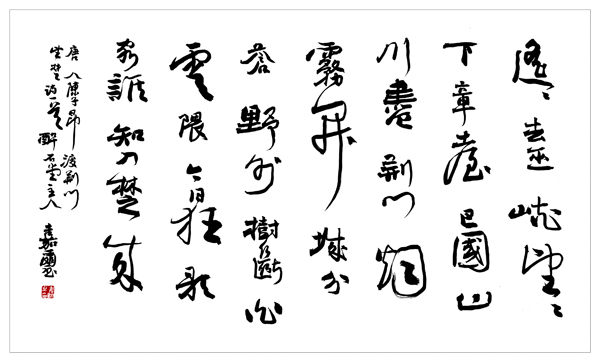 遙〻去巫峽望〻
下章臺巴國山
川盡荊門烟
霧開城分
蒼野外樹斷白
雲隈今日狂歌
客誰知入楚來
唐人陳子昂渡荊門
望楚詩 醉石堂主人